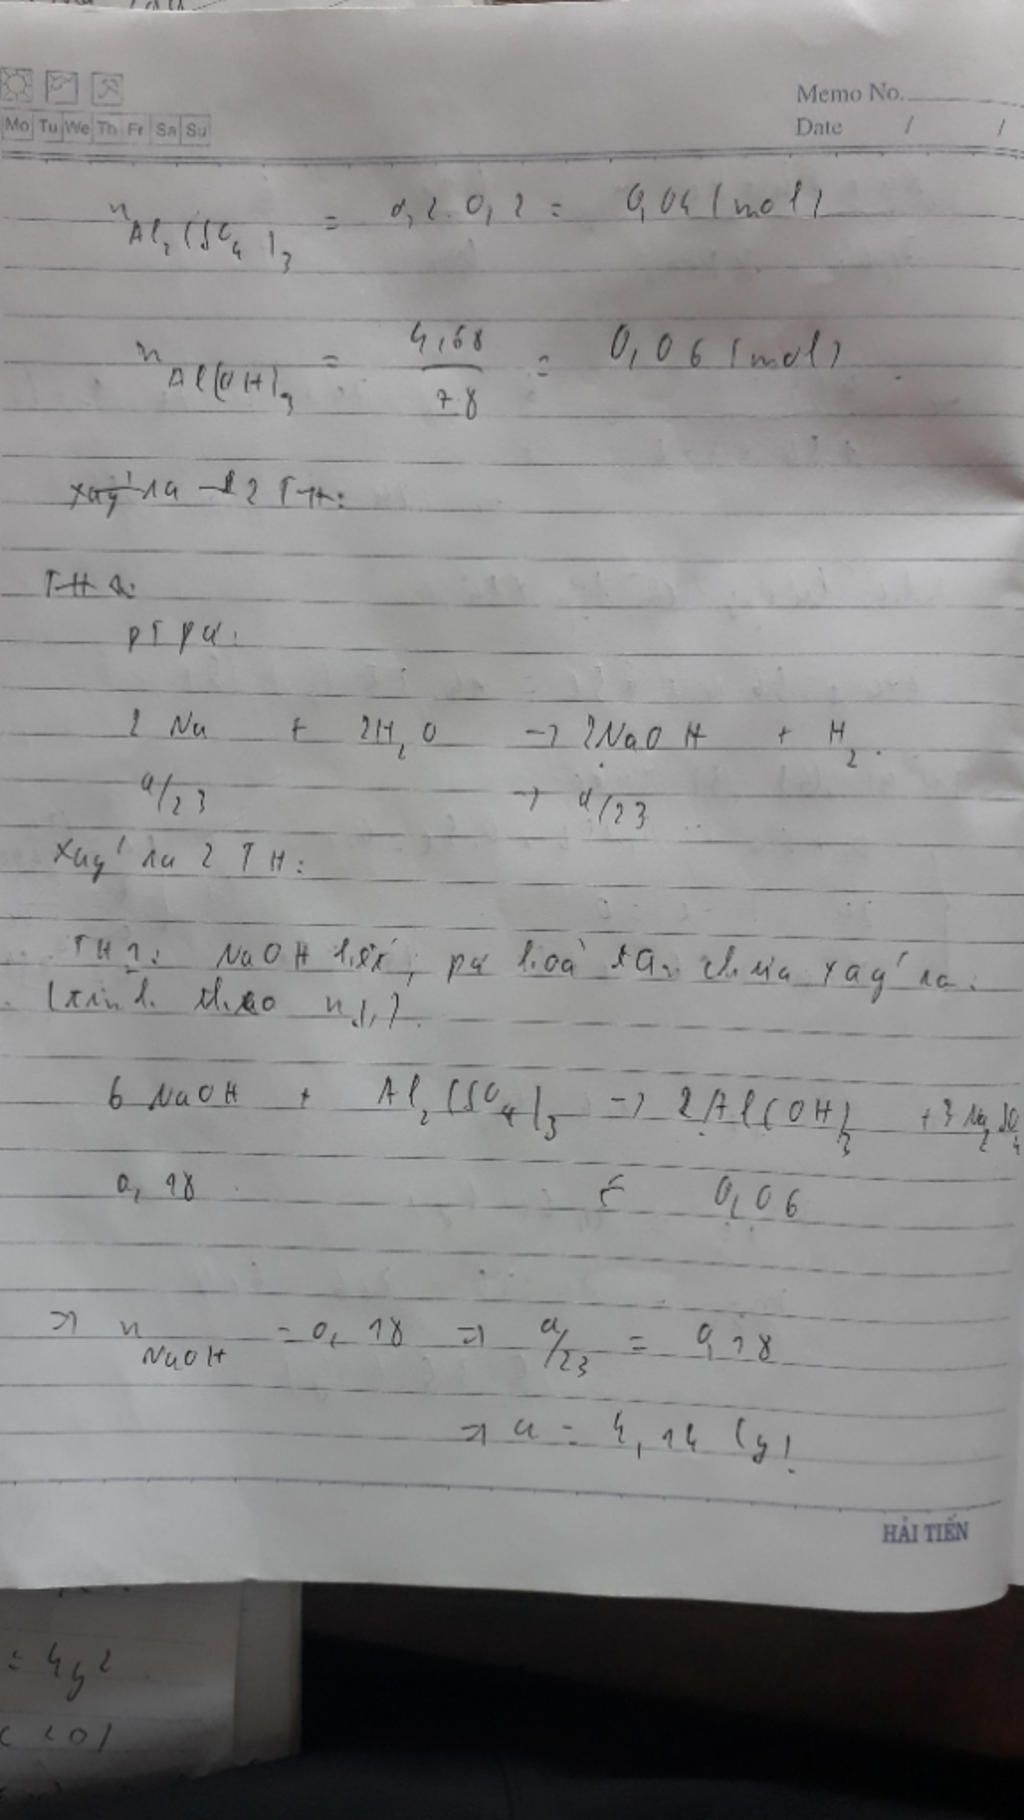 Memo No.
Mo Tu We Th Fr Sa Su
Date / /
n Al₂(SO₄)₃ = 0,2 . 0,2 = 0,04 (mol)
n Al(OH)₃ = 4,68/78 = 0,06 (mol)
xảy ra 2 TH:
TH
PTPứ:
2 Na + 2H₂O → 2NaOH + H₂.
a/23 → a/23
Xảy ra 2 TH:
TH1: NaOH hết, pứ hoà tan chưa xảy ra.
(tính theo n↓).
6 NaOH + Al₂(SO₄)₃ → 2Al(OH)₃ + 3Na₂SO₄
0,18 ← 0,06
=> n NaOH = 0,18 => a/23 = 0,18
=> a = 4,14 (g)
HẢI TIẾN
= 4y²